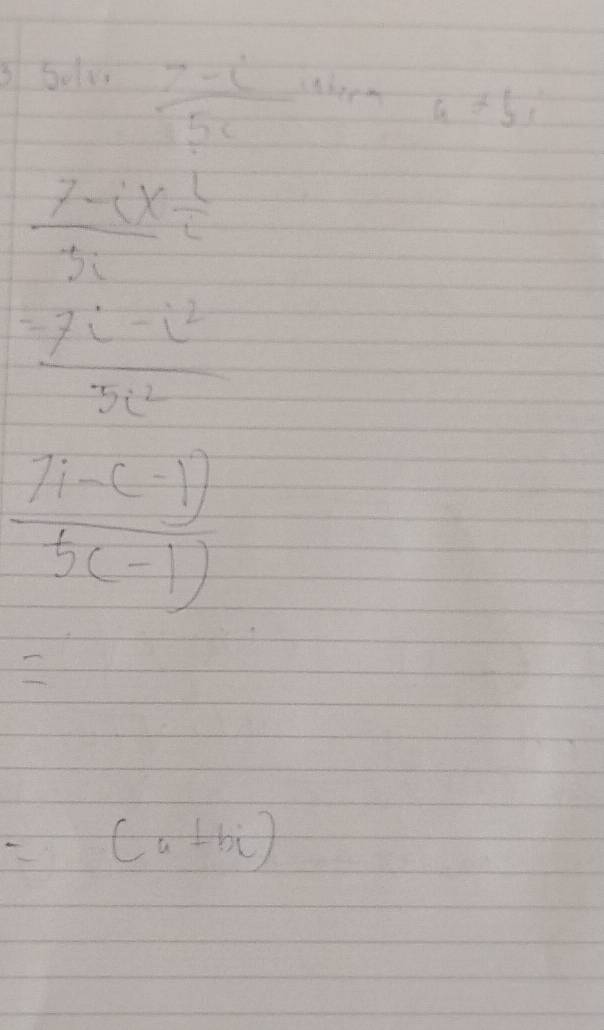 3 Solve 7 - i / 5i in form a + bi
7 - i / 5i × i / i
= 7i - i² / 5i²
7i - (-1) / 5(-1)
=
= (a + bi)